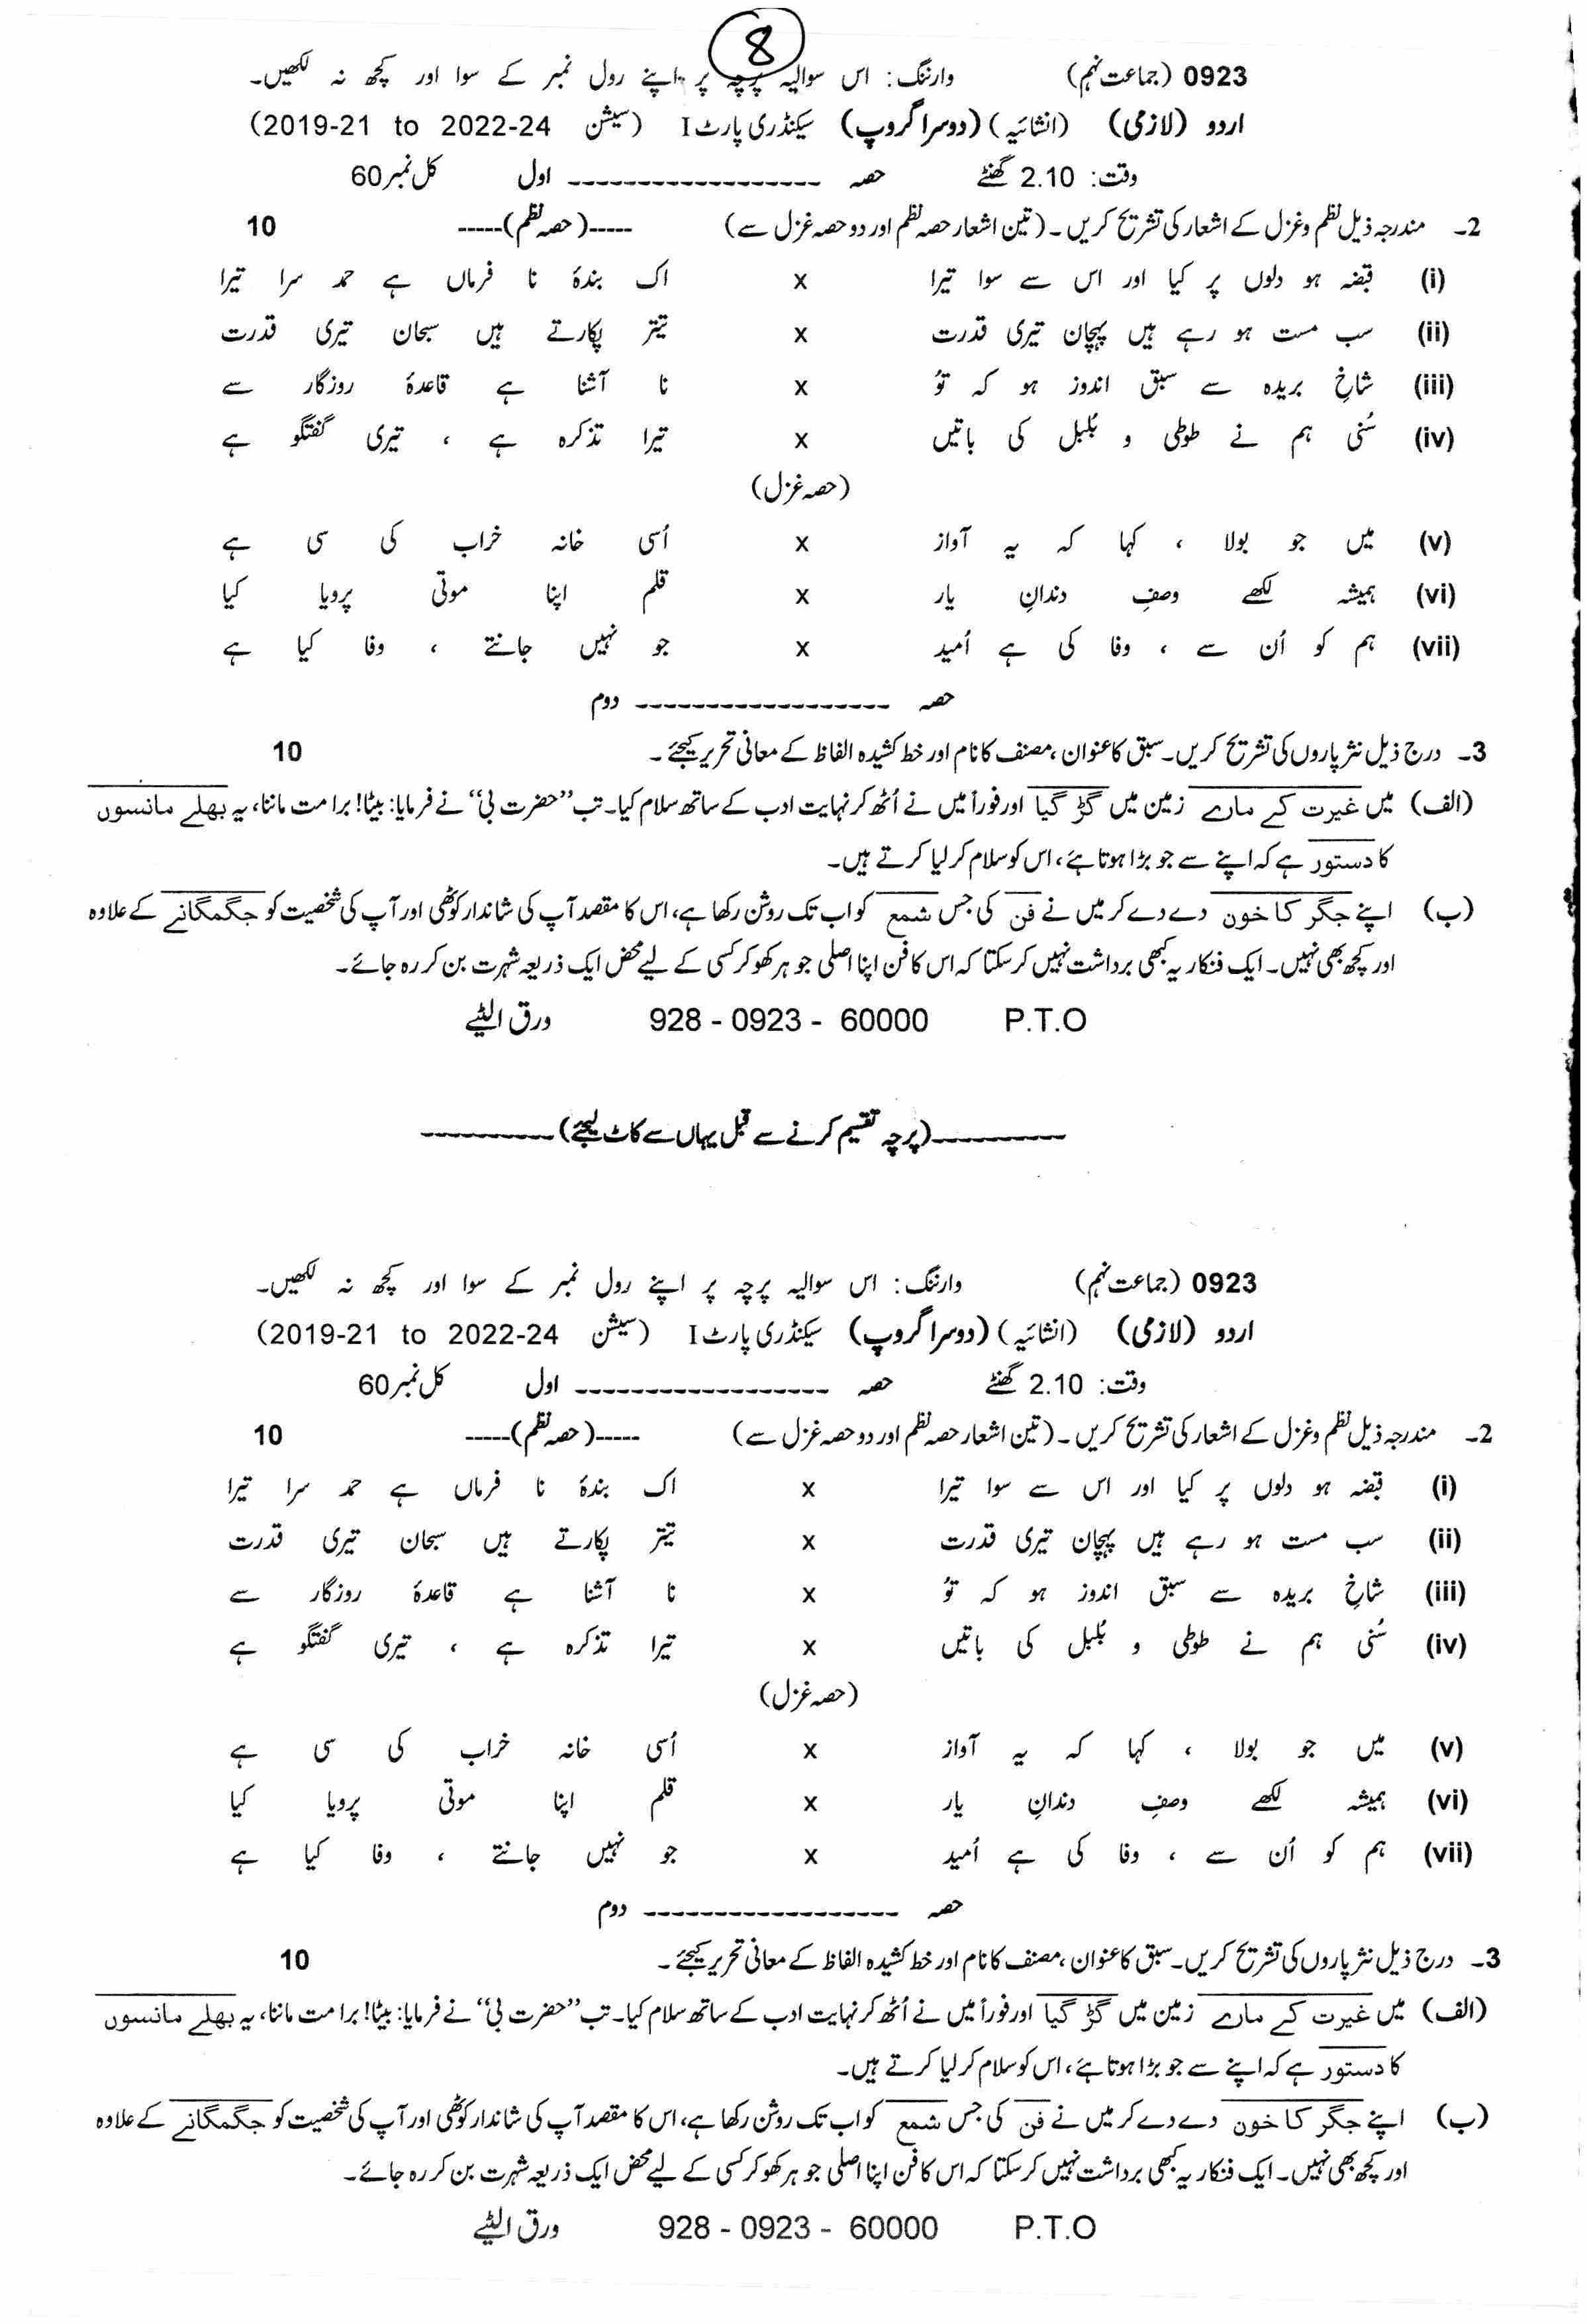 8
0923 (جماعت نہم) وارننگ: اس سوالیہ پرچہ پر اپنے رول نمبر کے سوا اور کچھ نہ لکھیں۔
اردو (لازمی) (انشائیہ) (دوسرا گروپ) سیکنڈری پارٹ I (سیشن 2019-21 to 2022-24)
وقت: 2.10 گھنٹے حصہ ------------------ اول کل نمبر 60
2۔ مندرجہ ذیل نظم و غزل کے اشعار کی تشریح کریں۔ (تین اشعار حصہ نظم اور دو حصہ غزل سے) -----(حصہ نظم)----- 10
(i) قبضہ ہو دلوں پر کیا اور اس سے سوا تیرا x اک بندۂ نا فرماں ہے حمد سرا تیرا
(ii) سب مست ہو رہے ہیں پہچان تیری قدرت x تیتر پکارتے ہیں سبحان تیری قدرت
(iii) شاخِ بریدہ سے سبق اندوز ہو کہ تُو x نا آشنا ہے قاعدۂ روزگار سے
(iv) سُنی ہم نے طوطی و بُلبل کی باتیں x تیرا تذکرہ ہے ، تیری گفتگو ہے
(حصہ غزل)
(v) میں جو بولا ، کہا کہ یہ آواز x اُسی خانہ خراب کی سی ہے
(vi) ہمیشہ لکھے وصفِ دندانِ یار x قلم اپنا موتی پرویا کیا
(vii) ہم کو اُن سے ، وفا کی ہے اُمید x جو نہیں جانتے ، وفا کیا ہے
حصہ ------------------ دوم
3۔ درج ذیل نثر پاروں کی تشریح کریں۔ سبق کا عنوان ، مصنف کا نام اور خط کشیدہ الفاظ کے معانی تحریر کیجئے۔ 10
(الف) میں غیرت کے مارے زمین میں گڑ گیا اور فوراً میں نے اُٹھ کر نہایت ادب کے ساتھ سلام کیا۔ تب ”حضرت بی“ نے فرمایا: بیٹا! برا مت ماننا، یہ بھلے مانسوں
کا دستور ہے کہ اپنے سے جو بڑا ہوتا ہے، اس کو سلام کر لیا کرتے ہیں۔
(ب) اپنے جگر کا خون دے دے کر میں نے فن کی جس شمع کو اب تک روشن رکھا ہے، اس کا مقصد آپ کی شاندار کوٹھی اور آپ کی شخصیت کو جگمگانے کے علاوہ
اور کچھ بھی نہیں۔ ایک فنکار یہ کبھی برداشت نہیں کر سکتا کہ اس کا فن اپنا اصلی جو ہر کھو کر کسی کے لیے محض ایک ذریعہ شہرت بن کر رہ جائے۔
ورق الٹیے 928 - 0923 - 60000 P.T.O
----------(پرچہ تقسیم کرنے سے قبل یہاں سے کاٹ لیجئے)----------
0923 (جماعت نہم) وارننگ: اس سوالیہ پرچہ پر اپنے رول نمبر کے سوا اور کچھ نہ لکھیں۔
اردو (لازمی) (انشائیہ) (دوسرا گروپ) سیکنڈری پارٹ I (سیشن 2019-21 to 2022-24)
وقت: 2.10 گھنٹے حصہ ------------------ اول کل نمبر 60
2۔ مندرجہ ذیل نظم و غزل کے اشعار کی تشریح کریں۔ (تین اشعار حصہ نظم اور دو حصہ غزل سے) -----(حصہ نظم)----- 10
(i) قبضہ ہو دلوں پر کیا اور اس سے سوا تیرا x اک بندۂ نا فرماں ہے حمد سرا تیرا
(ii) سب مست ہو رہے ہیں پہچان تیری قدرت x تیتر پکارتے ہیں سبحان تیری قدرت
(iii) شاخِ بریدہ سے سبق اندوز ہو کہ تُو x نا آشنا ہے قاعدۂ روزگار سے
(iv) سُنی ہم نے طوطی و بُلبل کی باتیں x تیرا تذکرہ ہے ، تیری گفتگو ہے
(حصہ غزل)
(v) میں جو بولا ، کہا کہ یہ آواز x اُسی خانہ خراب کی سی ہے
(vi) ہمیشہ لکھے وصفِ دندانِ یار x قلم اپنا موتی پرویا کیا
(vii) ہم کو اُن سے ، وفا کی ہے اُمید x جو نہیں جانتے ، وفا کیا ہے
حصہ ------------------ دوم
3۔ درج ذیل نثر پاروں کی تشریح کریں۔ سبق کا عنوان ، مصنف کا نام اور خط کشیدہ الفاظ کے معانی تحریر کیجئے۔ 10
(الف) میں غیرت کے مارے زمین میں گڑ گیا اور فوراً میں نے اُٹھ کر نہایت ادب کے ساتھ سلام کیا۔ تب ”حضرت بی“ نے فرمایا: بیٹا! برا مت ماننا، یہ بھلے مانسوں
کا دستور ہے کہ اپنے سے جو بڑا ہوتا ہے، اس کو سلام کر لیا کرتے ہیں۔
(ب) اپنے جگر کا خون دے دے کر میں نے فن کی جس شمع کو اب تک روشن رکھا ہے، اس کا مقصد آپ کی شاندار کوٹھی اور آپ کی شخصیت کو جگمگانے کے علاوہ
اور کچھ بھی نہیں۔ ایک فنکار یہ کبھی برداشت نہیں کر سکتا کہ اس کا فن اپنا اصلی جو ہر کھو کر کسی کے لیے محض ایک ذریعہ شہرت بن کر رہ جائے۔
ورق الٹیے 928 - 0923 - 60000 P.T.O